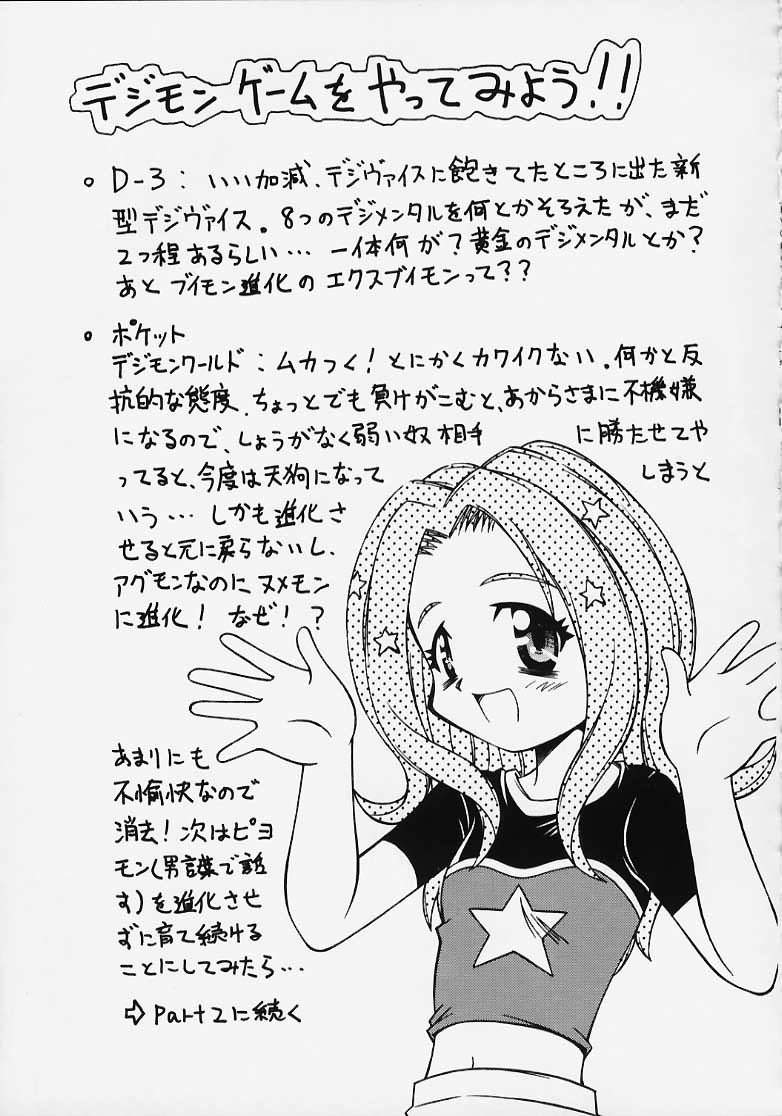 デジモンゲームをやってみよう!!
。D-3: いい加減、デジヴァイスに飽きてたところに出た新
型デジヴァイス。8つのデジメンタルを何とかそろえたが、まだ
2つ程あるらしい… 一体何が?黄金のデジメンタルとか?
あと ブイモン進化の エクスブイモンって??
• ポケット
デジモンワールド:ムカつく!とにかくカワイクない。何かと反
抗的な態度、ちょっとでも負けがこむと、あからさまに不機嫌
になるので、しょうがなく弱い奴相手に勝たせてや
ってると、今度は天狗になってしまうと
いう… しかも進化さ
せると元に戻らないし、
アグモンなのに ヌメモン
に進化! なぜ!?
あまりにも
不愉快なので
消去!次はピヨ
モン(男議で話
す)を進化させ
ずに育て続ける
ことにしてみたら…
⇨ Part2に続く